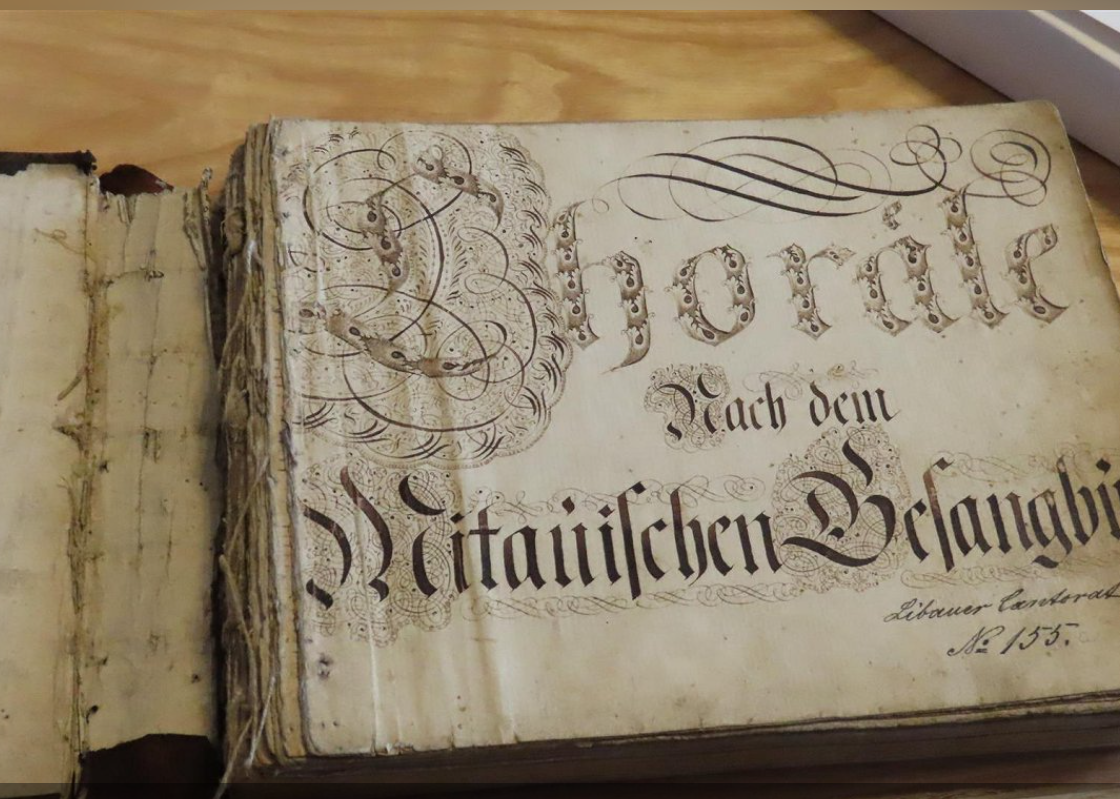 Choräle
Nach dem
Mitauischen Gesangbu
Libauer Cantorat
№ 155.